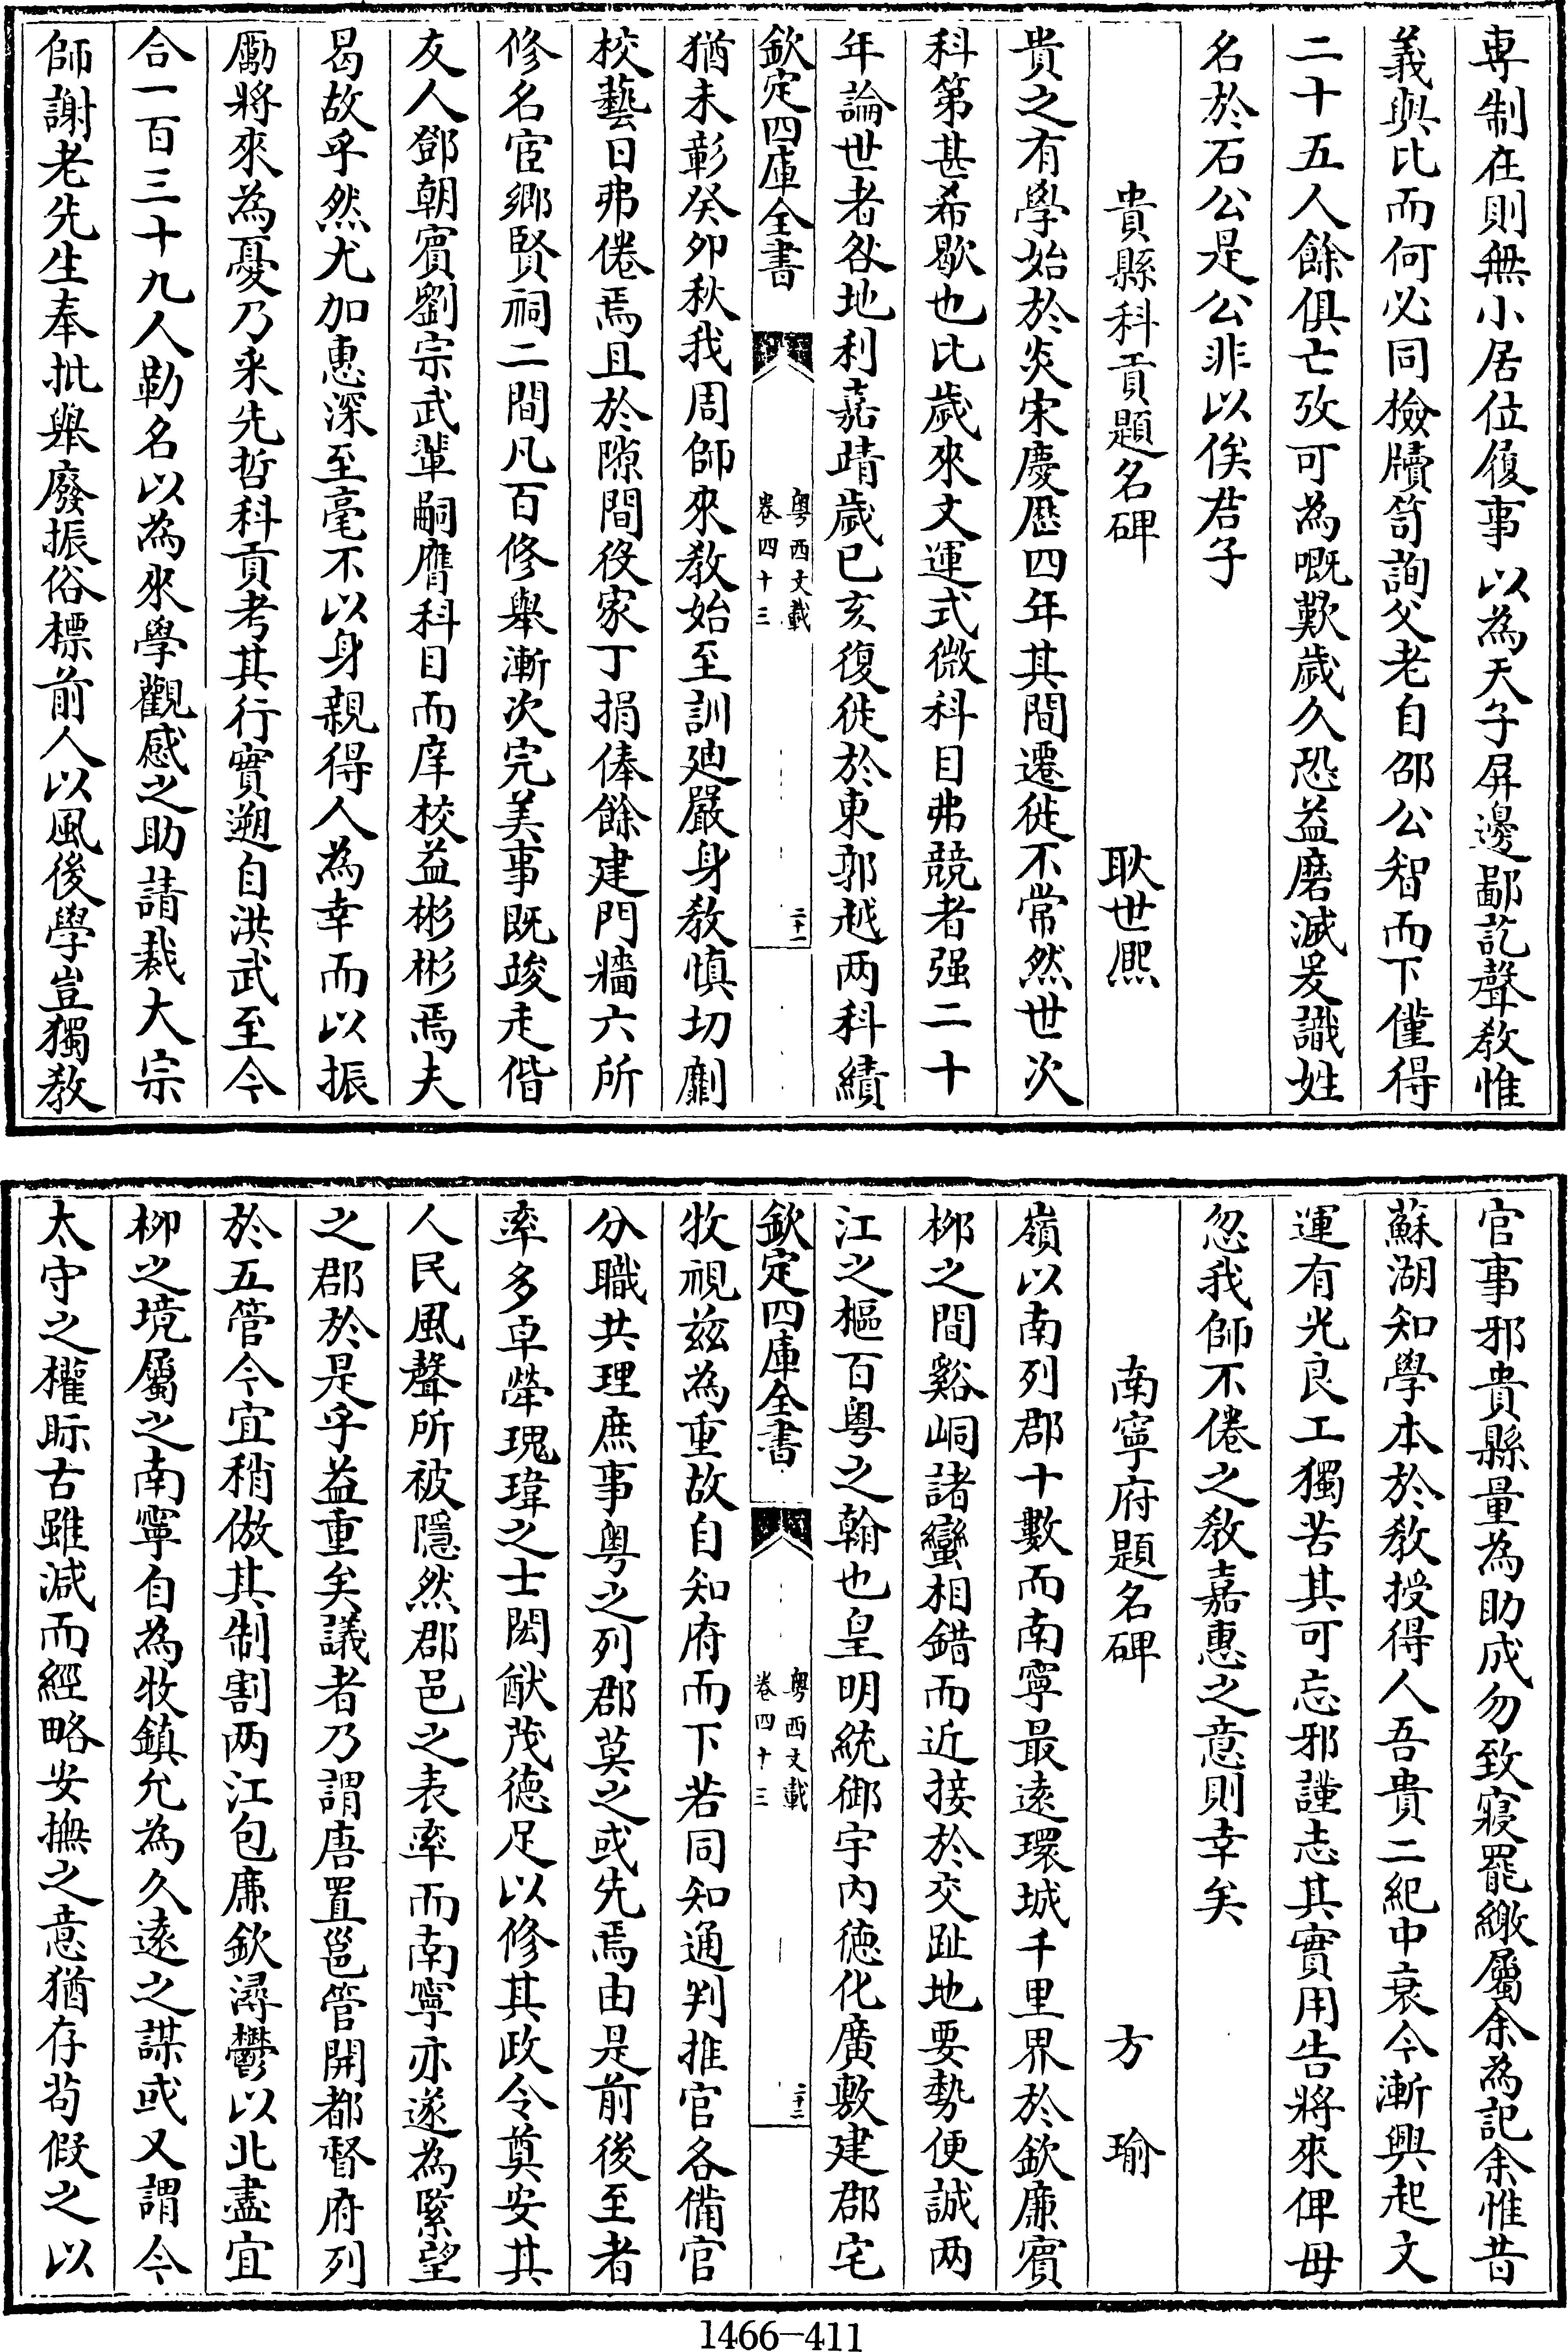 専制在則無小居位履事以為天子屏邊鄙訖聲教惟
義與比而何必同檢牘笥詢父老自邵公智而下僅得
二十五人餘俱亡攷可為嘅歎歲久恐益磨滅爰識姓
名於石公是公非以俟君子
貴縣科貢題名碑 耿世熈
貴之有學始於炎宋慶歴四年其間遷徙不常然世次
科第甚希歇也比歲來文運式微科目弗競者强二十
年論世者咎地利嘉靖歲已亥復徙於東郭越两科績
欽定四庫全書 粤西文載 卷四十三 二十一
猶未彰癸卯秋我周師來教始至訓廸嚴身教慎切劘
校藝日弗倦焉且於隙間役家丁捐俸餘建門牆六所
修名宦鄉賢祠二間凡百修舉漸次完美事既竣走偕
友人鄧朝賓劉宗武輩嗣膺科目而庠校益彬彬焉夫
曷故乎然尤加惠深至毫不以身親得人為幸而以振
勵將來為憂乃采先哲科貢考其行實遡自洪武至今
合一百三十九人勒名以為來學觀感之助請裁大宗
師謝老先生奉批舉廢振俗標前人以風後學豈獨教
官事邪貴縣量為助成勿致寢罷繳屬余為記余惟昔
蘇湖知學本於教授得人吾貴二紀中衰今漸興起文
運有光良工獨苦其可忘邪謹志其實用告將來俾毋
忽我師不倦之教嘉惠之意則幸矣
南寧府題名碑 方瑜
嶺以南列郡十數而南寧最遠環城千里界於欽廉賓
柳之間谿峒諸蠻相錯而近接於交趾地要勢便誠两
江之樞百粤之翰也皇明統御宇内德化廣敷建郡宅
欽定四庫全書 粤西文載 卷四十三 二十二
牧視兹為重故自知府而下若同知通判推官各備官
分職共理庶事粤之列郡莫之或先焉由是前後至者
率多卓犖瑰瑋之士閎猷茂德足以修其政令奠安其
人民風聲所被隱然郡邑之表率而南寧亦遂為緊望
之郡於是乎益重矣議者乃謂唐置邕管開都督府列
於五管今宜稍倣其制割两江包廉欽潯鬱以北盡宜
柳之境屬之南寧自為牧鎮允為久遠之謀或又謂今
太守之權眎古雖減而經略安撫之意猶存茍假之以
1466-411